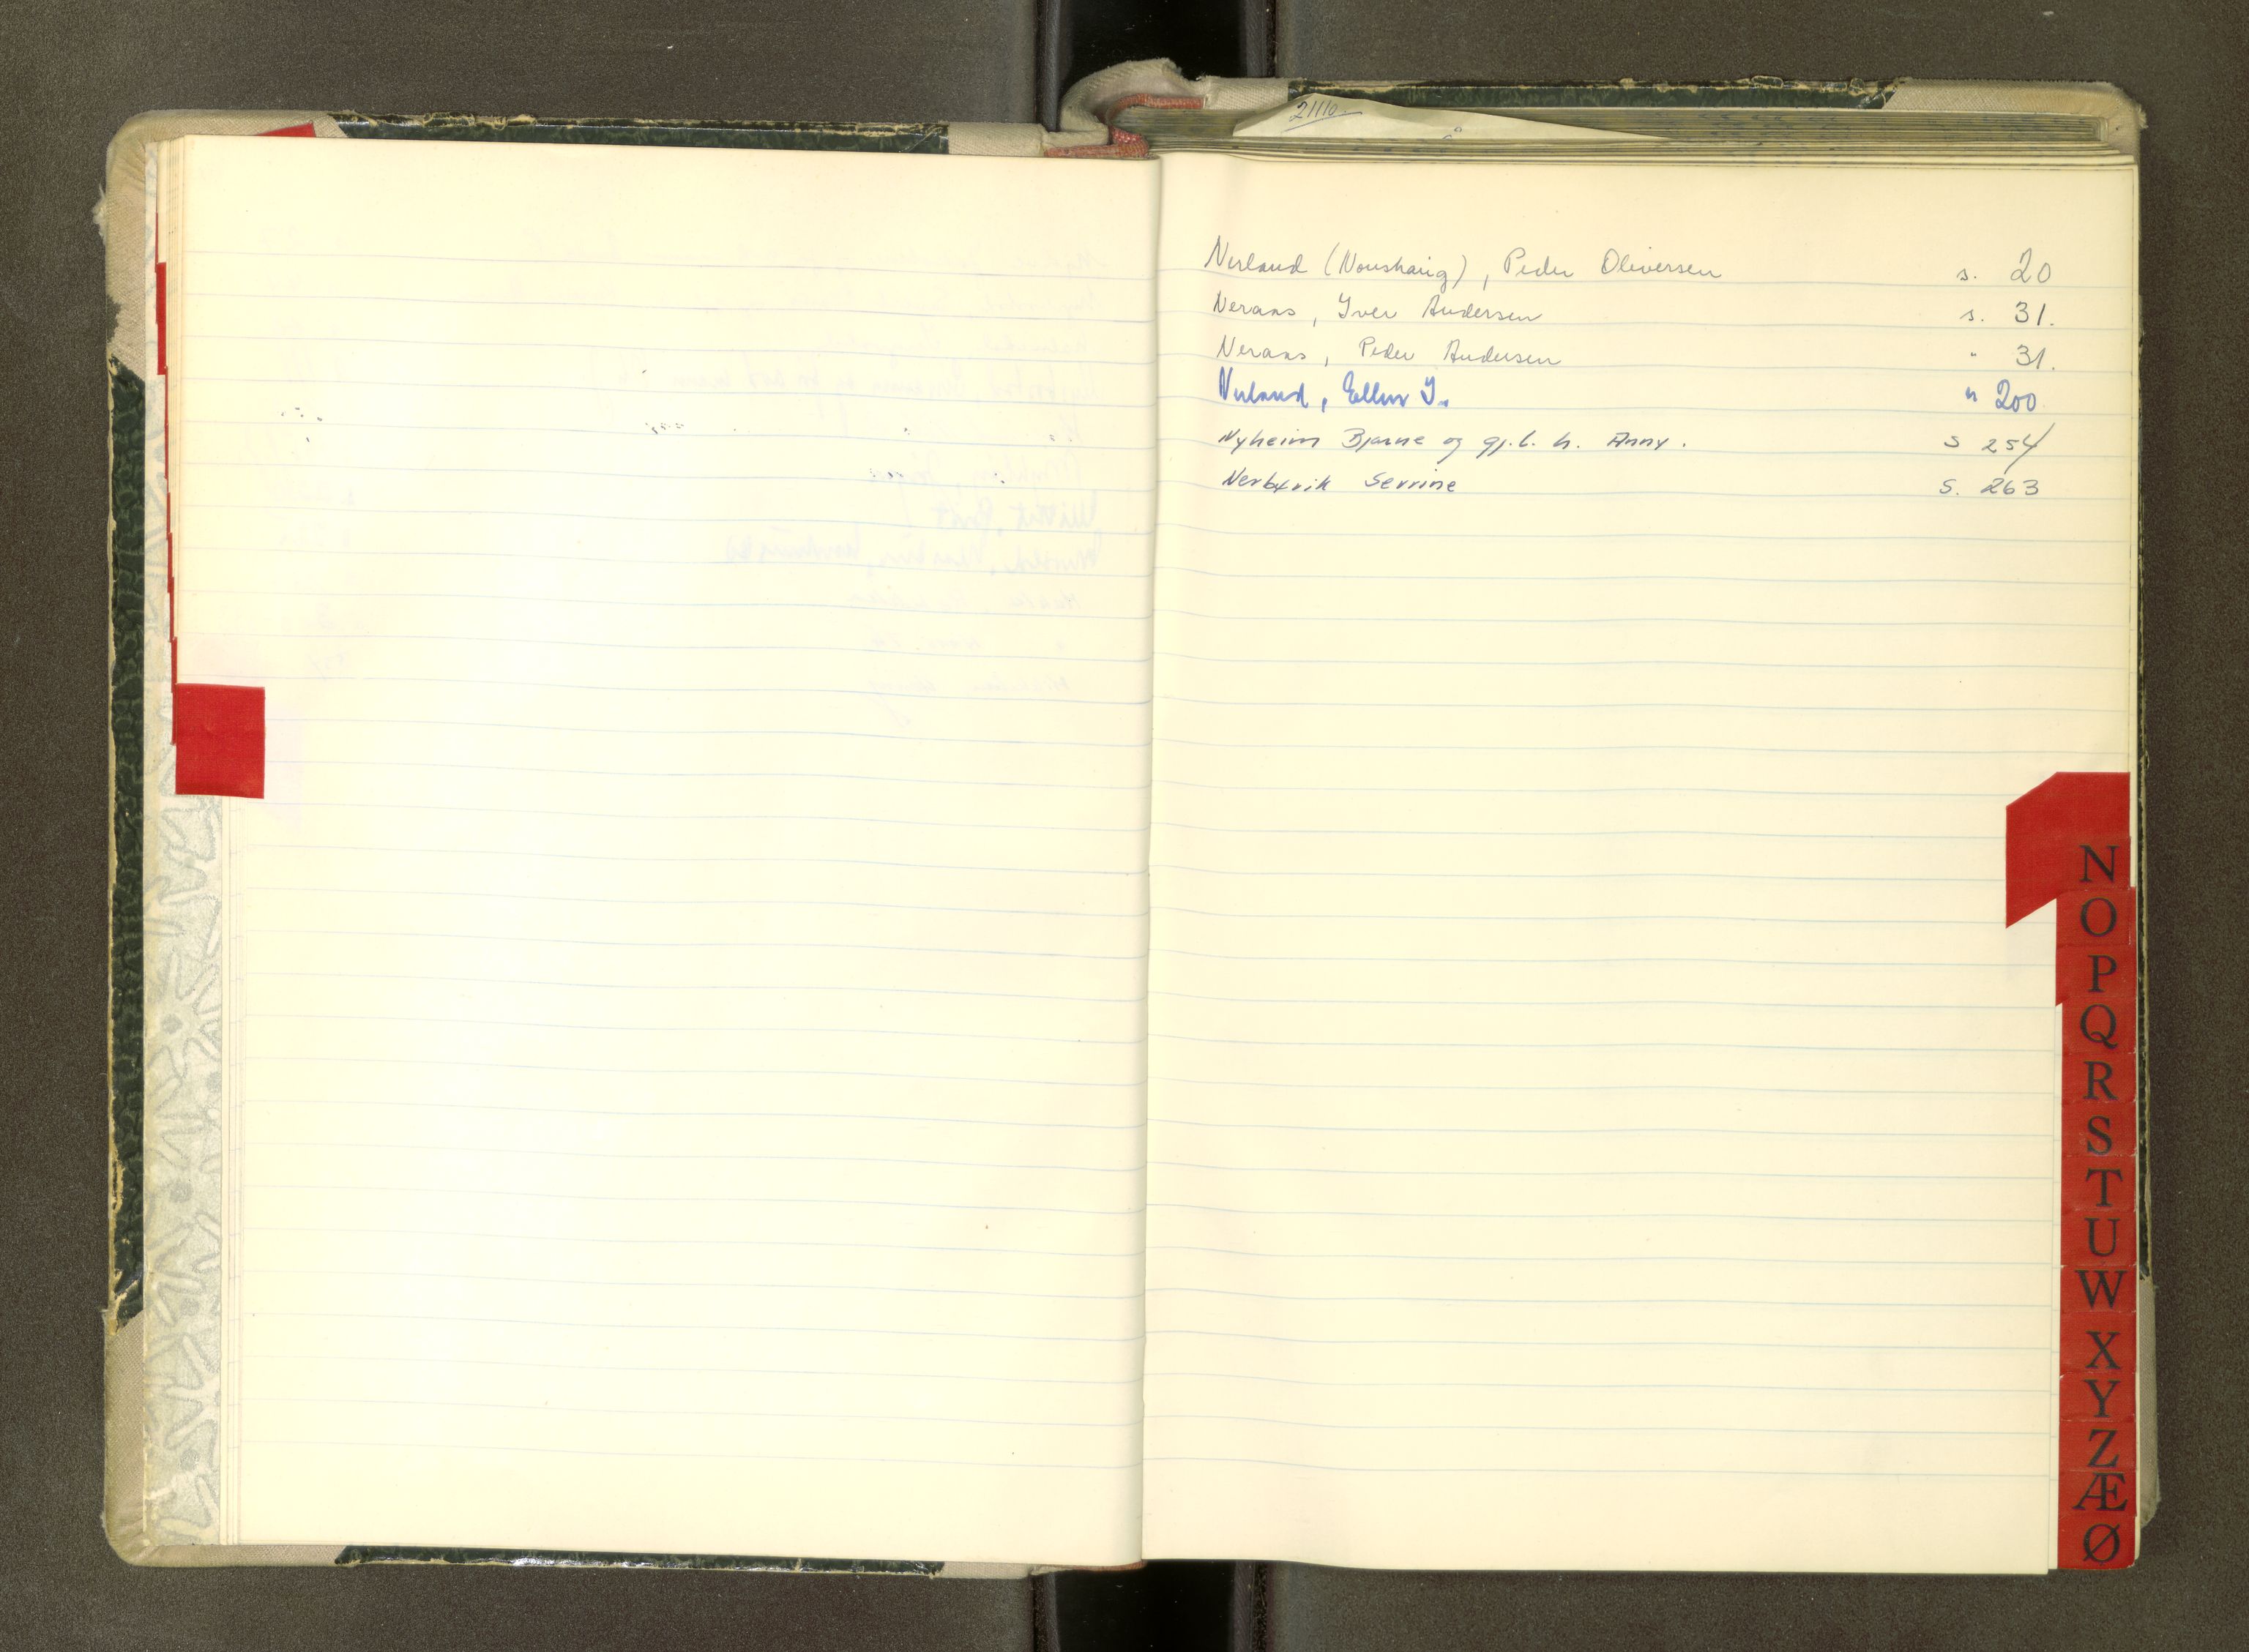 21110
Nerland (Noushaug), Peder Oliversen s. 20
Neraas, Iver Andersen s. 31.
Neraas, Peder Andersen " 31.
Nerland, Ellen I. " 200
Nyheim Bjarne og gj.l. h. Anny. s 254
Nerbøvik Serrine s. 263
N
O
P
Q
R
S
T
U
W
X
Y
Z
Æ
Ø